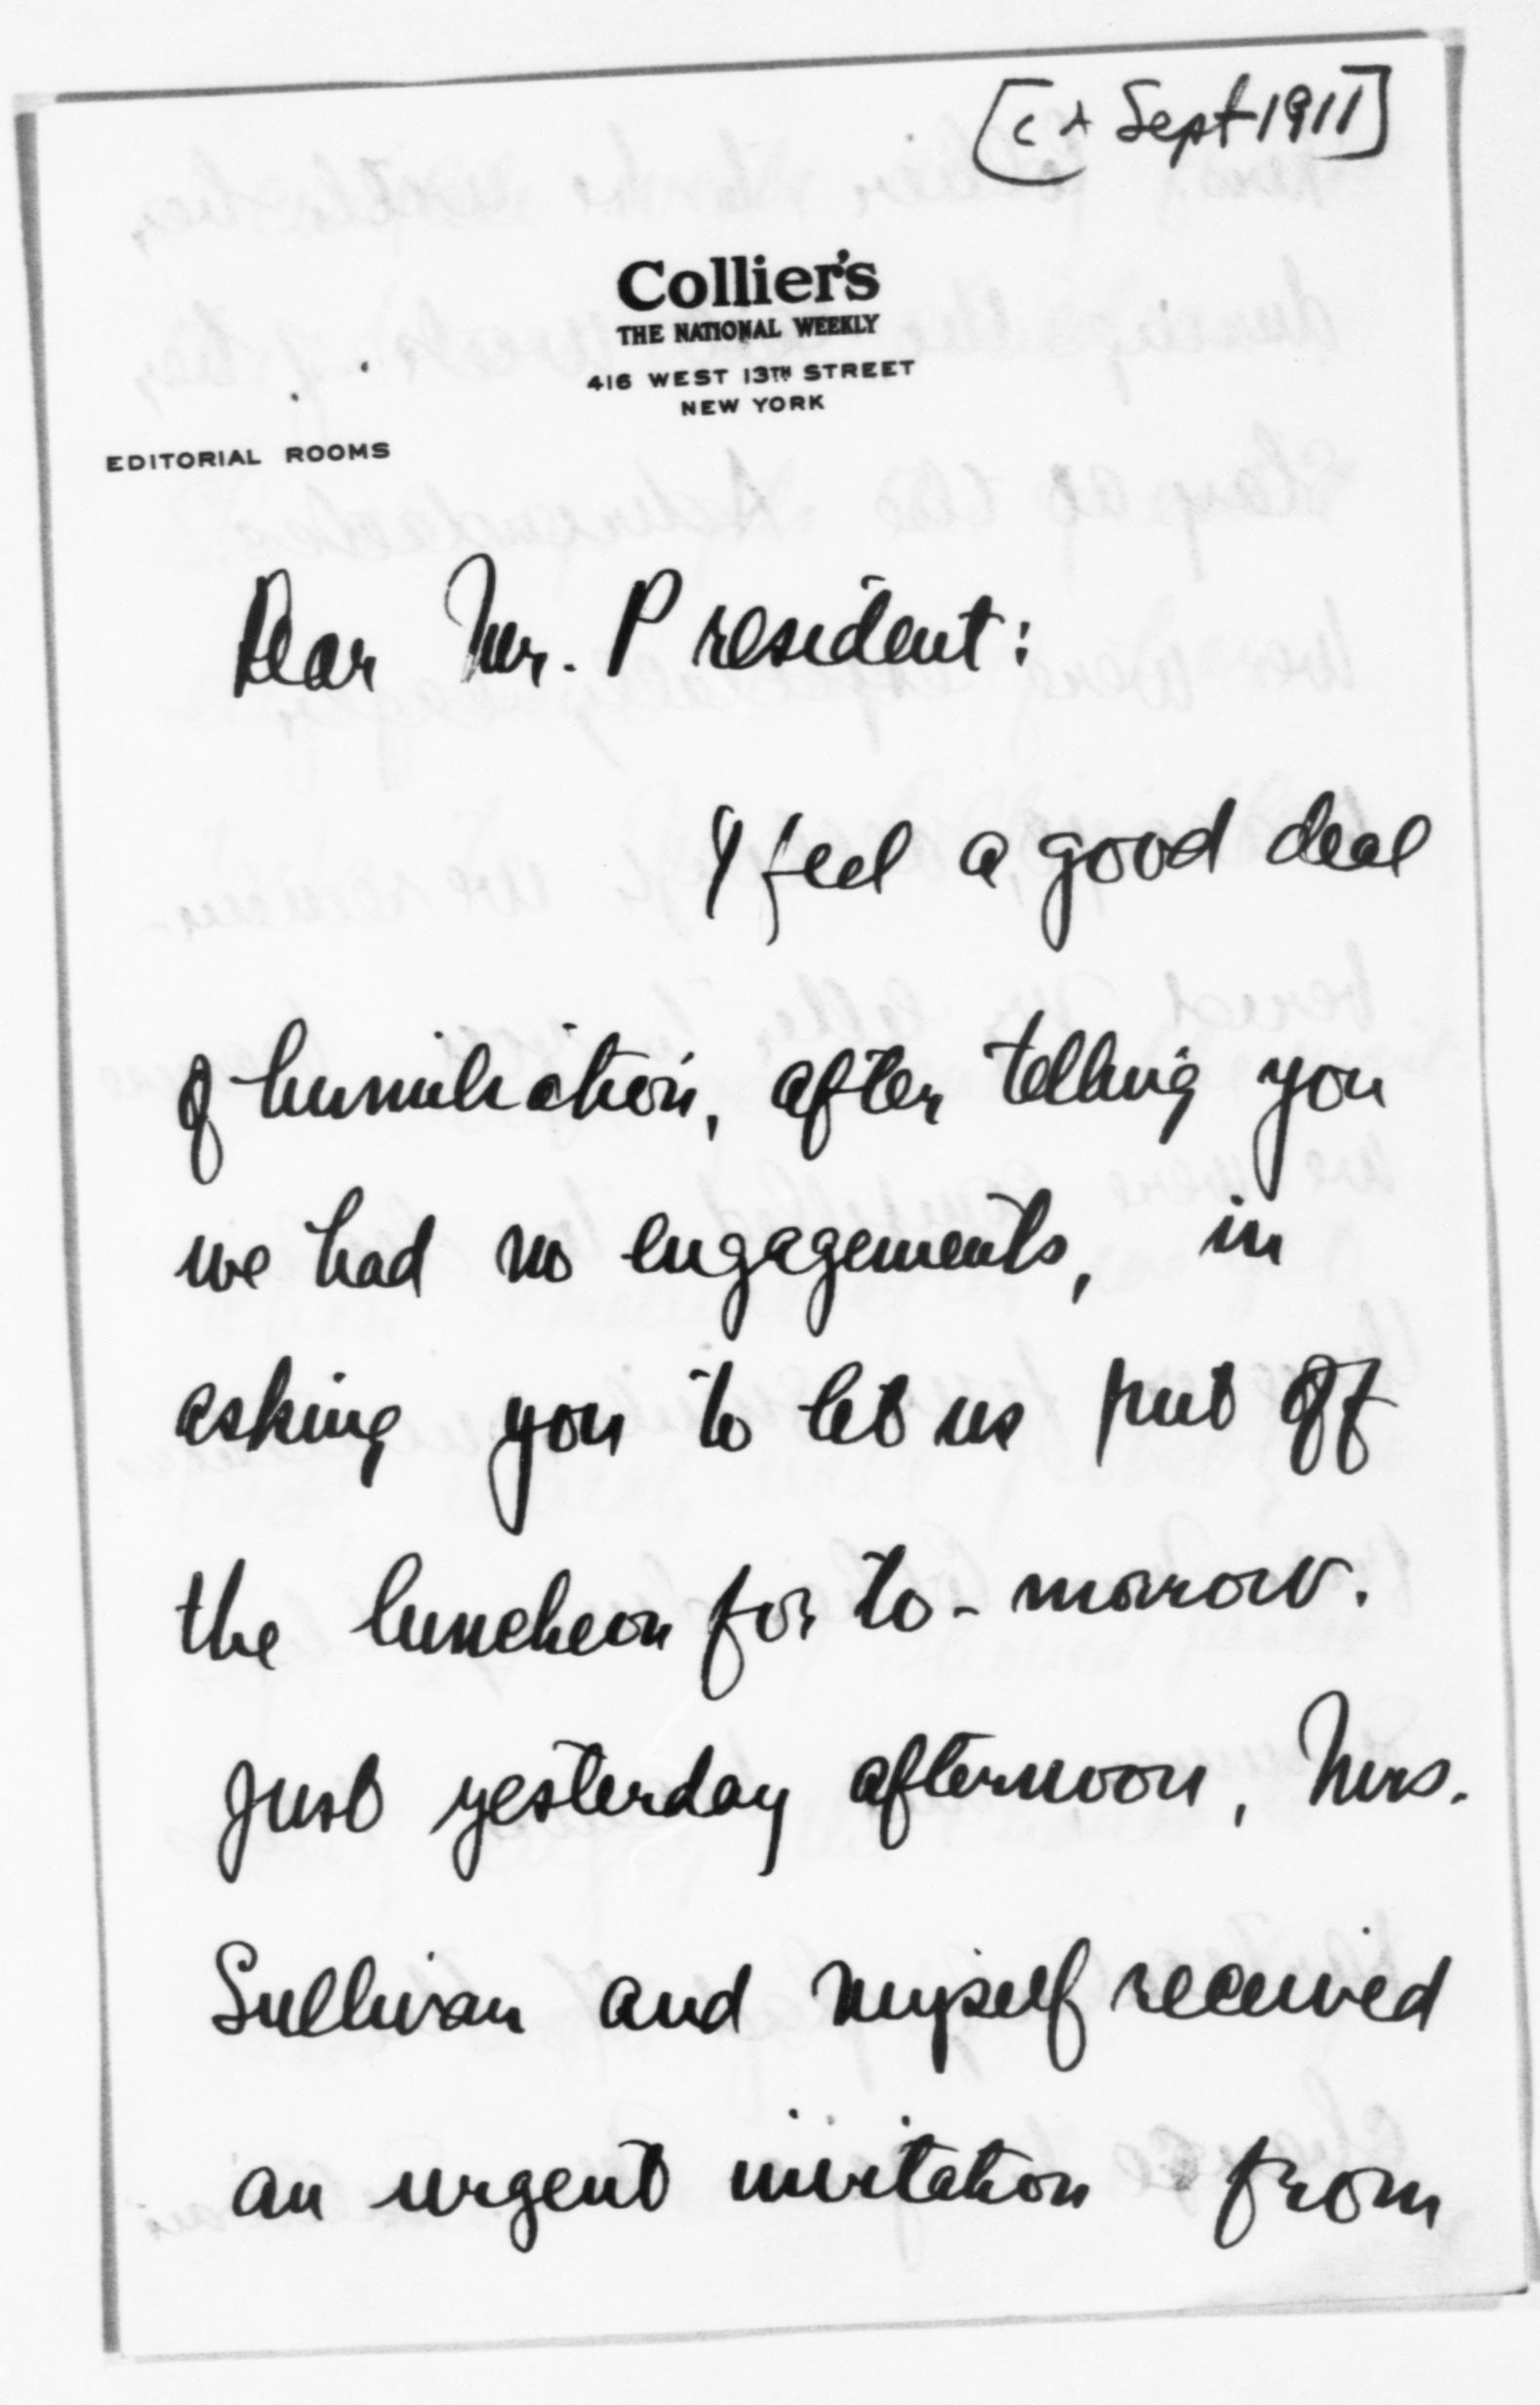 [ca Sept 1911]
Collier's
THE NATIONAL WEEKLY
416 WEST 13TH STREET
NEW YORK
EDITORIAL ROOMS
Dear Mr. President:
I feel a good deal
of humiliation, after telling you
we had no engagements, in
asking you to let us put off
the luncheon for to-morrow.
Just yesterday afternoon, Mrs.
Sullivan and myself received
an urgent invitation from